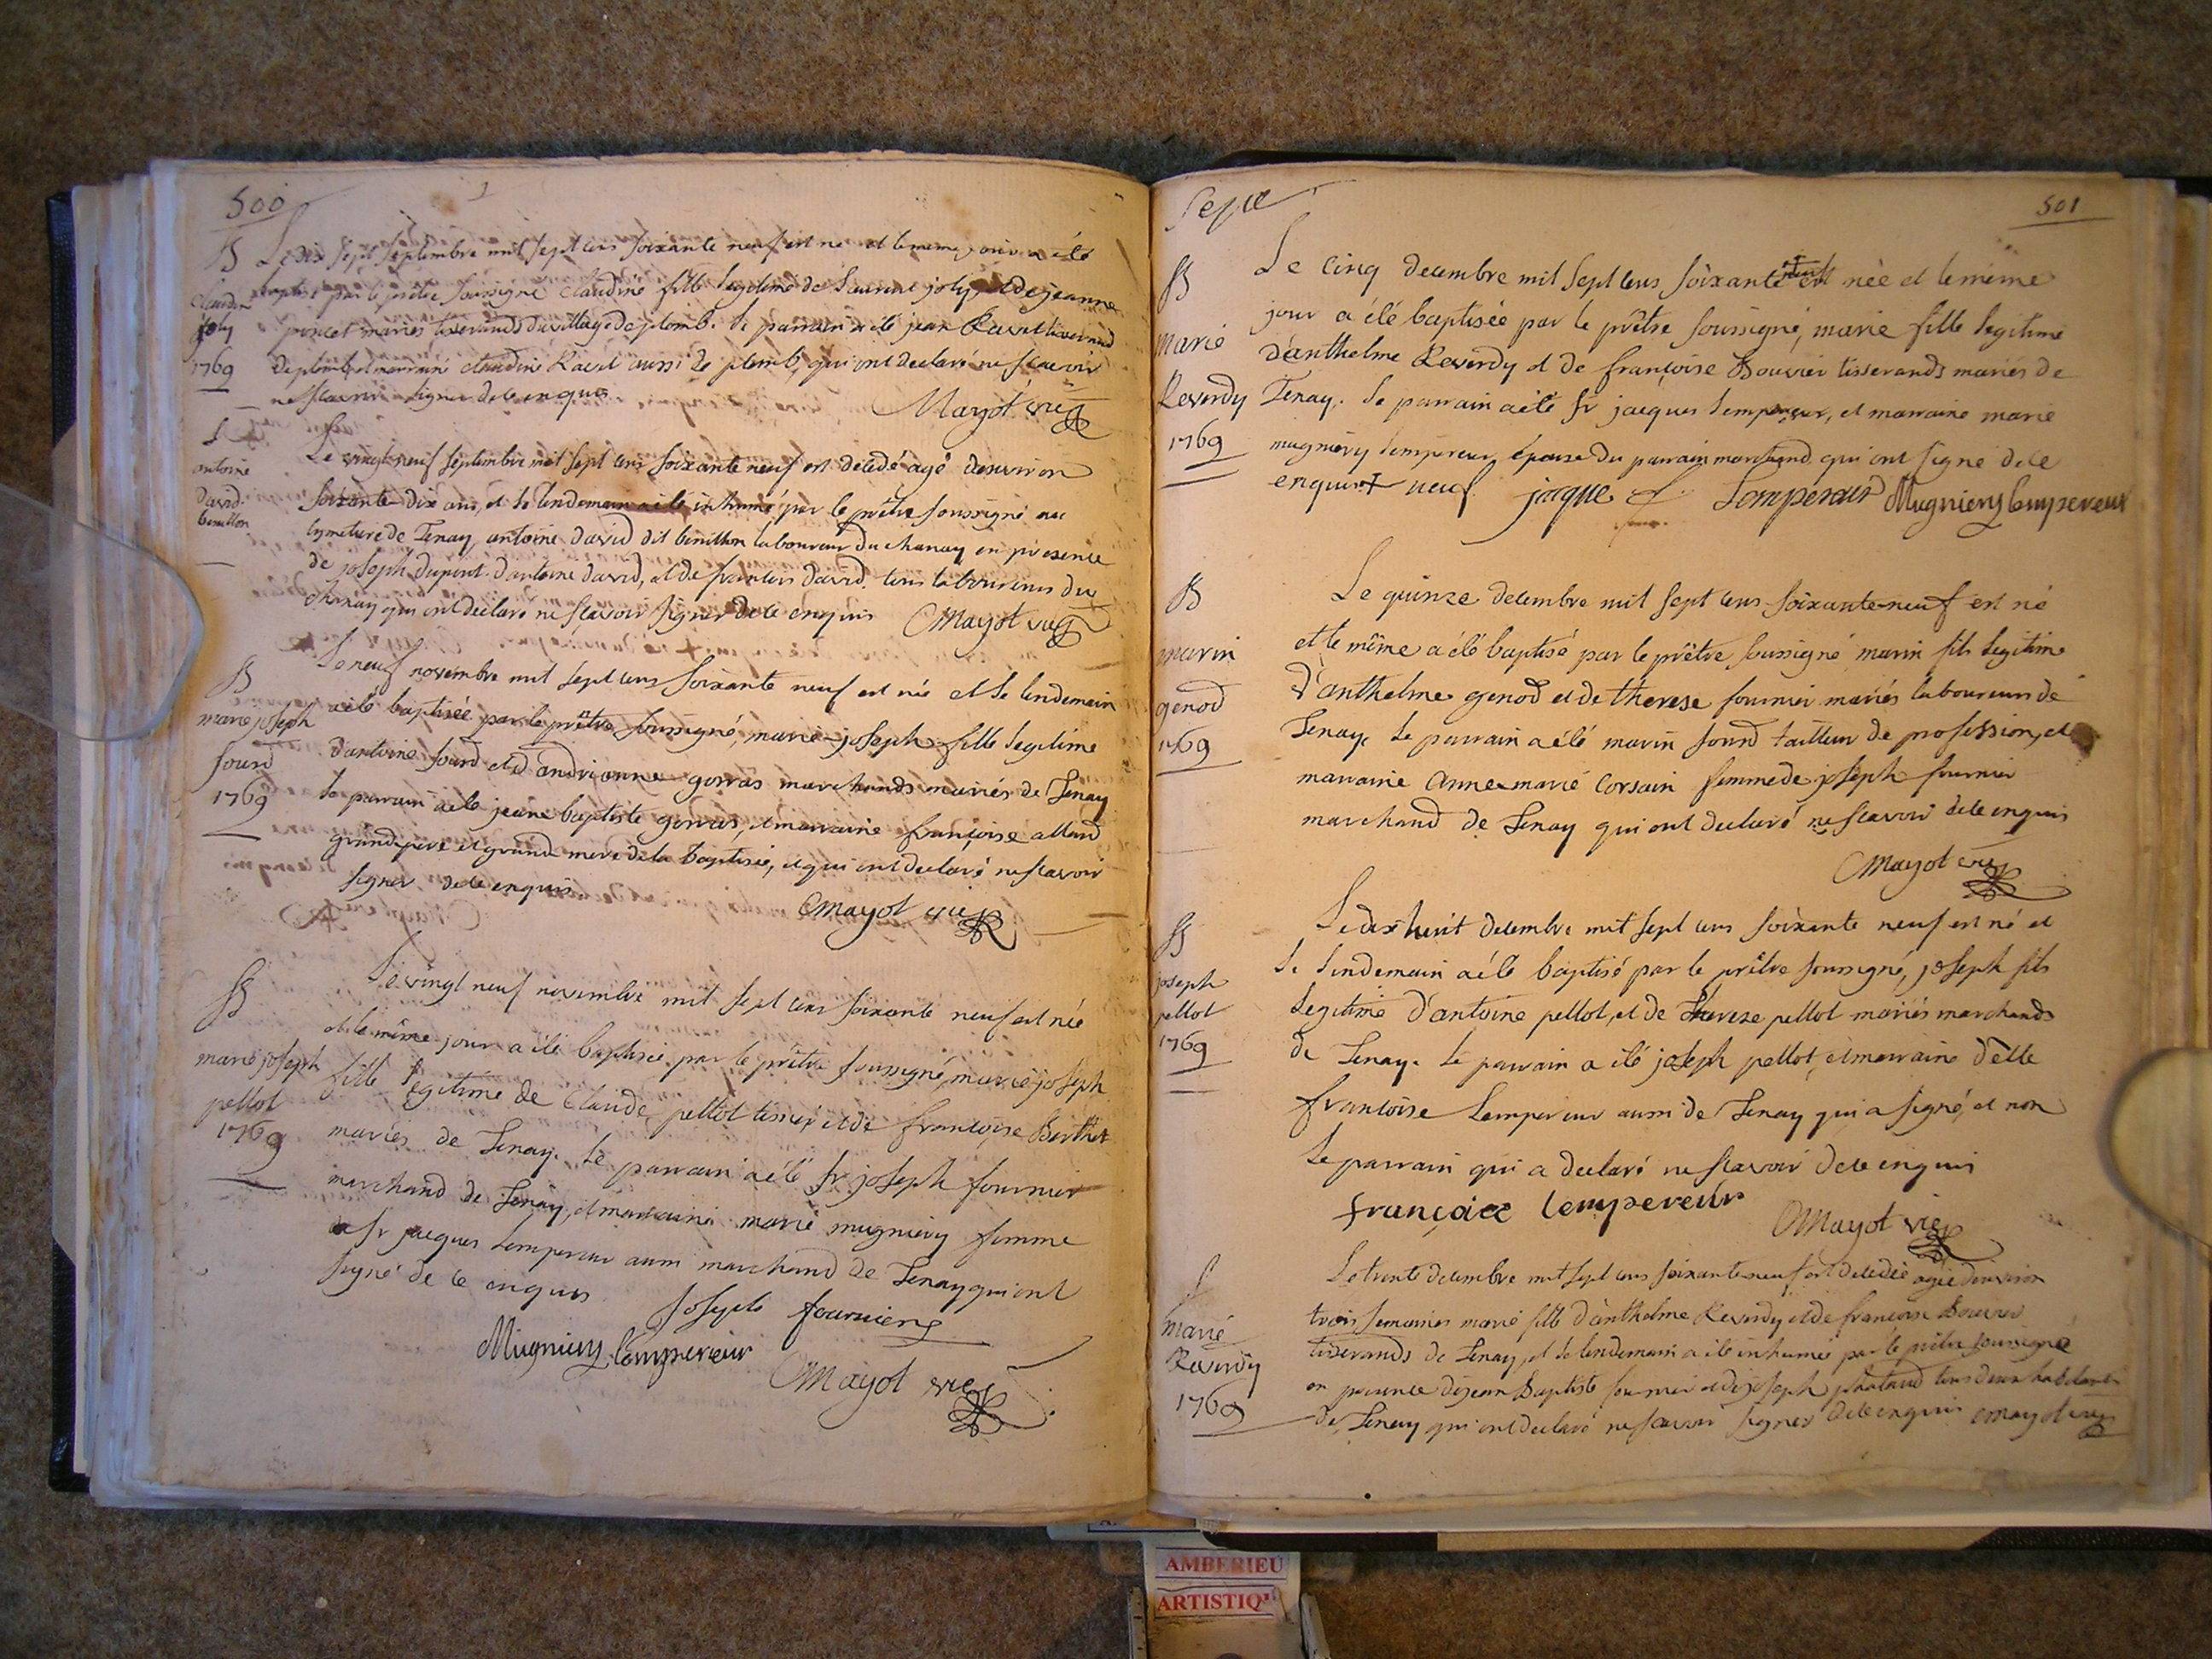 500
B
Claudine
joly
1769
Le dix sept septembre mil sept cens soixante neuf est né et le meme jour a été
baptisé par le prêtre soussigné Claudine fille legitime de Laurent joly, et de jeanne
poncet mariés tisserands du village de plomb. le parrain a été jean Ravet tisserand
de plomb et marraine claudine Ravet aussi de plomb, qui ont declaré ne scavoir
ne scavoir signer de ce enquis
Mayot vic
S
antoine
david
benillon
Le vingt neuf septembre mil sept cens soixante neuf est decedé agé denviron
soixante dix ans, et le lendemain a été inhumé par le prêtre soussigné au
cymetiere de Tenay, antoine david dit benillon laboureur du chanay en presence
de joseph dupont d'antoine david, et de francois david tous laboureurs du
chanay qui ont declaré ne scavoir signer de ce enquis Mayot vic
B
marie joseph
sourd
1769
Le neuf novembre mil sept cens soixante neuf est née et le lendemain
a été baptisée par le prêtre soussigné, marie-joseph fille legitime
d'antoine sourd et d'andrianne gorras marchands mariés de Tenay
le parrain a été jean baptiste gorras, et marraine françoise allard
grand pere et grand mere de la baptisée, et qui ont declaré ne scavoir
signer de ce enquis
Mayot vic
B
marie joseph
pellot
1769
Le vingt neuf novembre mil sept cens soixante neuf est née
et le même jour a été baptisée par le prêtre soussigné, marie joseph
fille legitime de Claude pellot tissier et de françoise Berthet
mariés de Tenay. le parrain a été sr joseph fournier
marchand de Tenay, et marraine marie mugniery femme
a sr jacques lempereur aussi marchand de Tenay qui ont
signé de ce enquis
Joseph fournier
Mugniery lempereur
Mayot vic
501
B
marie
Reverdy
1769
Le cinq decembre mil sept cens soixante + est née et le même
jour a été baptisée par le prêtre soussigné, marie fille legitime
d'anthelme Reverdy et de françoise Bouvier tisserands mariés de
Tenay. le parrain a été sr jacques lempereur, et marraine marie
mugniery lempereur épouse du parrain marchand qui ont signé de ce
enquis + neuf jaque Lempereur Mugniery lempereur
B
marin
genod
1769
Le quinze decembre mil sept cens soixante-neuf est né
et le même a été baptisé par le prêtre soussigné marin fils legitime
d'anthelme genod et de therese fournier mariés laboureurs de
Tenay. le parrain a été marin sourd tailleur de profession, et
marraine Anne-marie Corsain femme de joseph fournier
marchand de Tenay qui ont declaré ne scavoir de ce enquis
Mayot vic
B
joseph
pellot
1769
Le dix huit decembre mil sept cens soixante neuf est né et
le lendemain a été baptisé par le prêtre soussigné, joseph fils
legitime d'antoine pellot, et de therese pellot mariés marchands
de Tenay. le parrain a été joseph pellot, et marraine delle
françoise Lempereur aussi de Tenay qui a signé, et non
le parrain qui a declaré ne scavoir de ce enquis
françoise lempereur
Mayot vic
S
marie
Reverdy
1769
Le trente decembre mil sept cens soixante-neuf est decedée agée denviron
trois semaines marie fille d'anthelme Reverdy et de françoise Bouvier
tisserands de Tenay, et le lendemain a été inhumée par le prêtre soussigné
en presence de jean Baptiste fournier et de joseph tous deux habitans
de Tenay qui ont declaré ne scavoir signer de ce enquis Mayot vic
AMBERIEU
ARTISTIQ